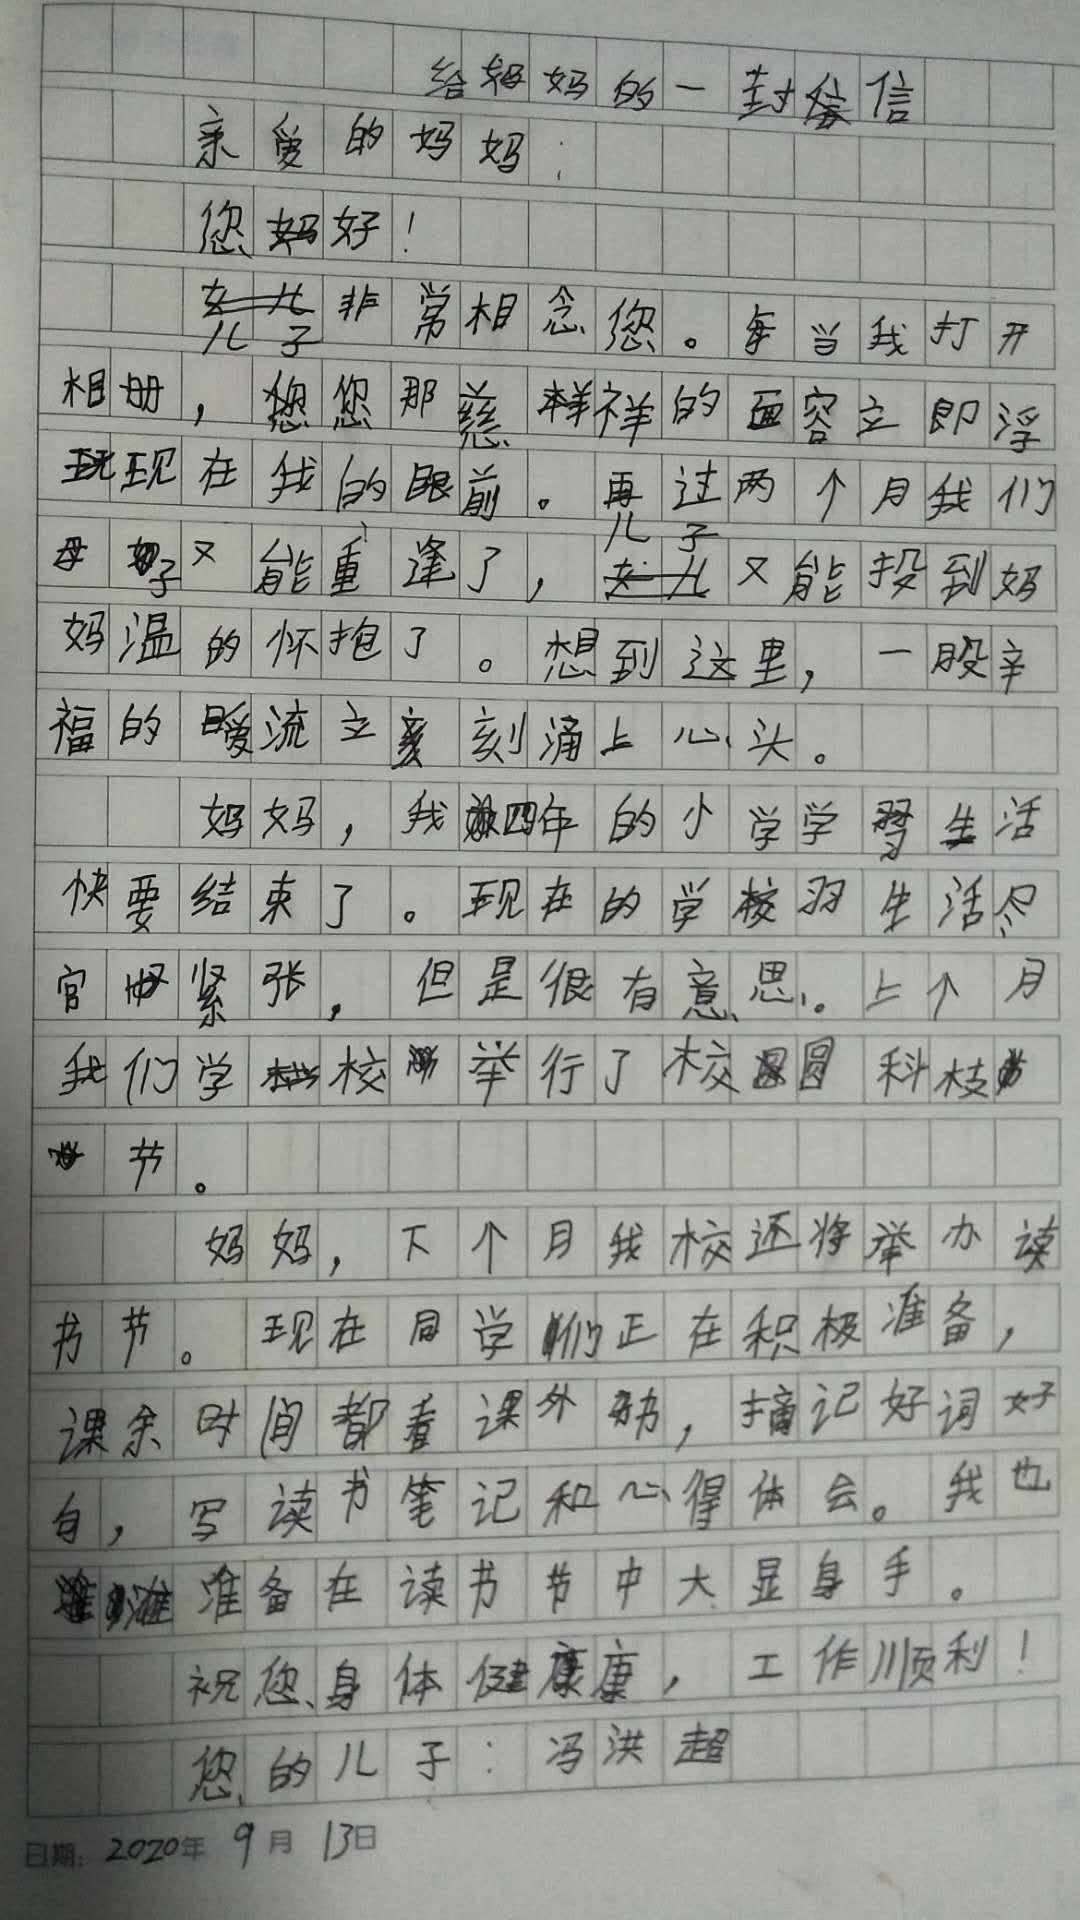 给妈妈的一封信
亲爱的妈妈:
您好!
儿子非常相念您。每当我打开
相册,您那慈祥的面容立即浮
现在我的眼前。再过两个月我们
母子又能重逢了,儿子又能投到妈
妈温的怀抱了。想到这里,一股辛
福的暖流立刻涌上心头。
妈妈,我四年的小学学習生活
快要结束了。现在的学校习生活尽
官紧张,但是很有意思。上个月
我们学校举行了校圆科枝
节。
妈妈,下个月我校还将举办读
书节。现在同学们正在积极准备,
课余时间都看课外书,摘记好词好
句,写读书笔记和心得体会。我也
准备在读书节中大显身手。
祝您身体健康,工作顺利!
您的儿子:冯洪超
日期:2020年9月13日